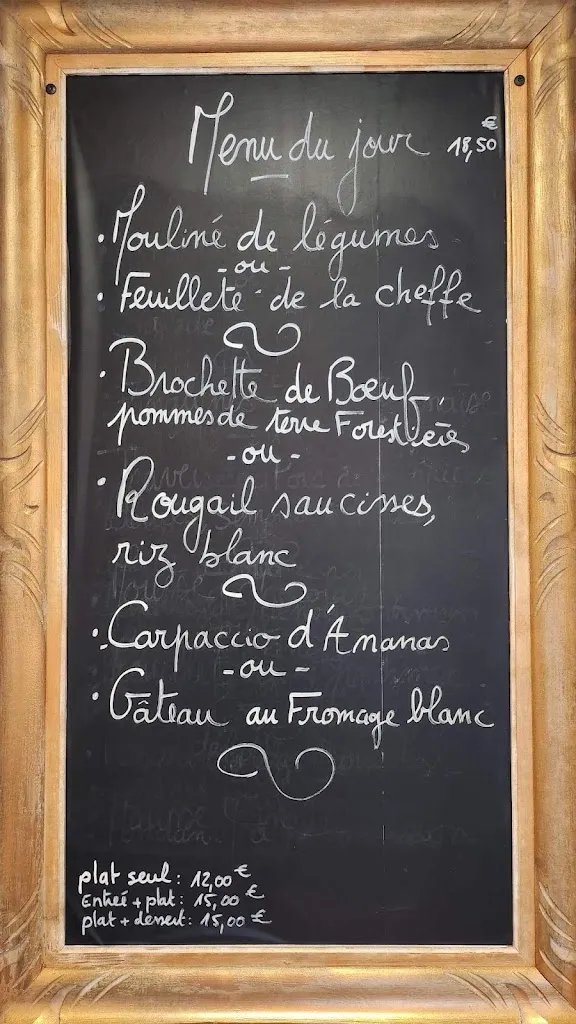 Menu du jour 18,50 €
• Mouliné de légumes
- ou -
• Feuilleté de la cheffe
• Brochette de Bœuf,
pommes de terre Forestières
- ou -
• Rougail saucisses,
riz blanc
• Carpaccio d'Ananas
- ou -
• Gâteau au Fromage blanc
plat seul : 12,00 €
Entrée + plat : 15,00 €
plat + dessert : 15,00 €